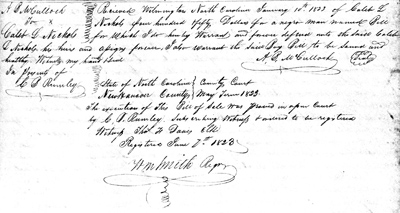 A. McCulloch
To x
Caleb D. Nichols
Received Wilmington North Carolina January 10th 1823 of Caleb D.
Nichols four hundred fifty Dollars for a negro man named Bill
for Which I do hereby Warrant and forever defend unto the said Caleb
D. Nichols his heirs and assigns forever. I also warrant the said Boy Bill to be sound and
healthy Witness my hand Seal
In presents of
C. B. Rumley
A. McCulloch Seal
State of North Carolina County Court
New Hanover County May Term 1823.
The execution of this Bill of Sale was proved in open Court
by C. B. Rumley Subscribing Witness & ordered to be registered
Witness Thos. F. Davis Clk
Registered June 7th 1823
Wm Smith Regr